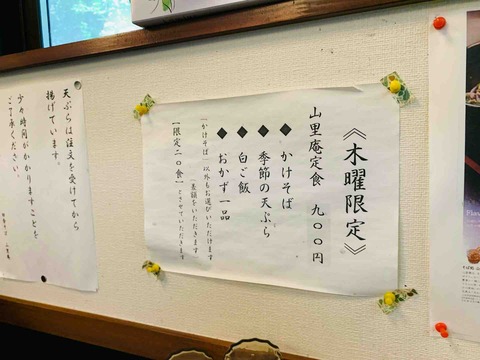 《木曜限定》
山里庵定食 九〇〇円
◆ かけそば
◆ 季節の天ぷら
◆ 白ご飯
◆ おかず一品
「かけそば」以外もお選びいただけます
（差額をいただきます）
【限定二〇食】とさせていただきます
天ぷらは注文を受けてから
揚げています。
少々時間がかかりますことを
ご了承ください。